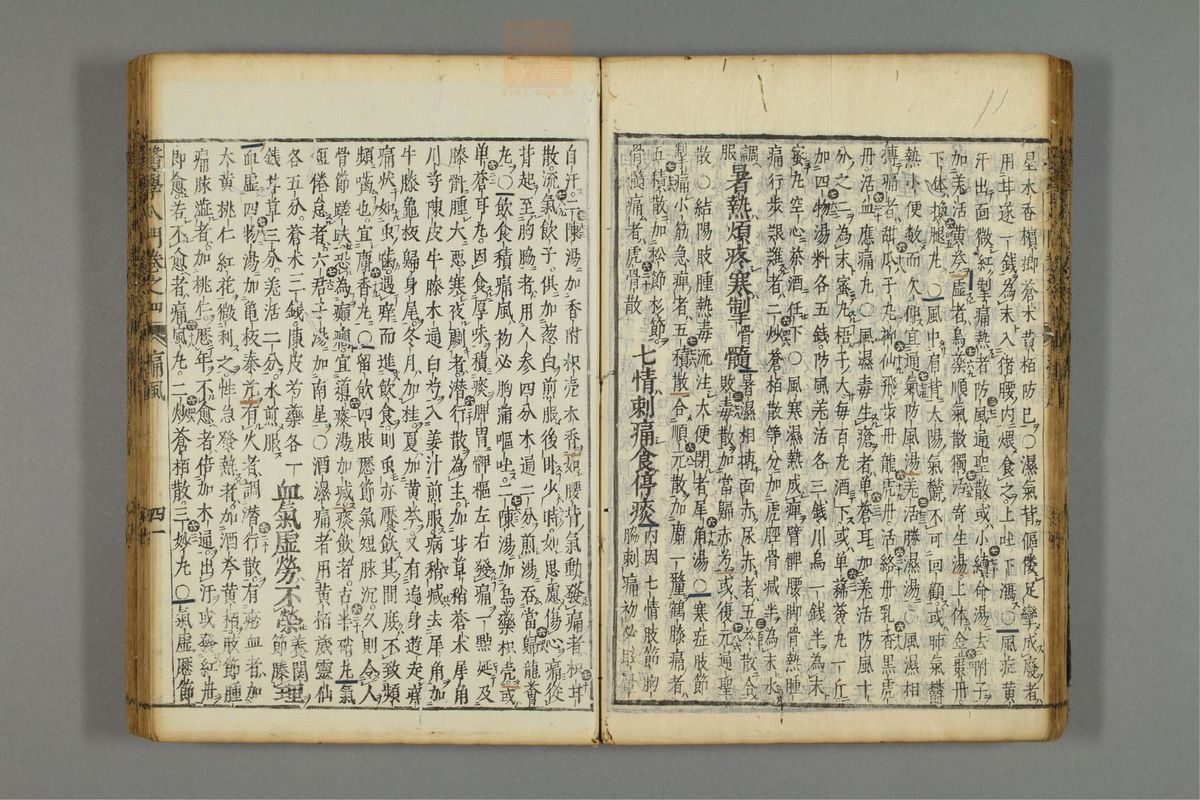 星木香檳榔蒼朮黃栢防已○濕氣背傴僂足攣成廢者
用甘遂一錢為末入猪腰內煨食之上吐下瀉○風症黃
汗出面微紅掣痛熱者防風通聖散或小續命湯去附子
加羌活黃芩虛者烏藥順氣散獨活寄生湯上体金棗丹
下体換腿丸○風中肩背太陽氣欝不可回顧或肺氣欝
熱小便數而欠伸宜通氣防風湯羌活勝濕湯○風濕相
摶痛者甜瓜子丸神仙飛步丹龍虎丹活絡丹乳香黑虎
丹活血應痛丸○風濕毒生瘡者單蒼耳加羌活防風十
分之二為末蜜丸梧子大每百丸酒下或單豨薟丸一斤
加四物湯料各五錢防風羌活各三錢川烏一錢半為末
蜜丸空心茶酒任下○風寒濕熱成痺臂髀腰脚骨熱腫
痛行步艱難者二炒蒼栢散等分加虎脛骨減半為末水
調服
暑熱煩疼寒掣骨髓
暑濕相摶面赤尿赤者五苓散入
敗毒散加當歸赤芍或復元通聖
散○結陽肢腫熱毒流注大便閉者犀角湯○寒症肢節
掣痛小筋急痺者五積散合順元散加麝一釐鶴膝痛者
五積散加松節杉節
骨髓痛者虎骨散
七情刺痛食停痰
內因七情肢節胸
脇刺痛初必眩暈
自汗二陳湯加香附枳壳木香如腰背氣動發痛者枳甘
散流氣飲子俱加葱白煎服後卧少時刻思慮傷心痛從
背起至胸脇者用人參四分木通二分煎湯吞當歸龍薈
丸○飲食積痛風初必胸滿嘔吐二陳湯加烏藥枳壳或
單蒼耳丸因食厚味積痰脾胃髀樞左右發痛一點延及
膝骭腫大惡寒夜劇者潜行散為主加甘草梢蒼朮犀角
川芎陳皮牛膝木通白芍入姜汁煎服病稍減去犀角加
牛膝龜板歸身尾冬月加桂夏加黃芩又有遍身遊走癢
痛狀如虫嚙遇痒而進飲食則虫亦饜飫其間度不致頻
頻嚙也宜麝香丸○留飲四肢歷節氣短脉沉久則令人
骨節蹉跌恐為癲癇宜導痰湯加減痰飲者古半硝丸氣
短倦怠者六君子湯加南星○酒濕痛者用黃栢威靈仙
各五分蒼朮三錢陳皮芍藥各一
錢甘草三分羌活二分水煎服
血氣虛勞不榮
養關理
節腠
血虛四物湯加龜板秦艽有火者調潜行散有瘀血者加
大黃桃仁紅花微利之性急發熱者加酒芩黃栢肢節腫
痛脉澁者加桃仁歷年不愈者倍加木通出汗或發紅丹
即愈若不愈者痛風丸二炒蒼栢散三妙丸○氣虛歷節
醫學入門卷之四　痛風　四一